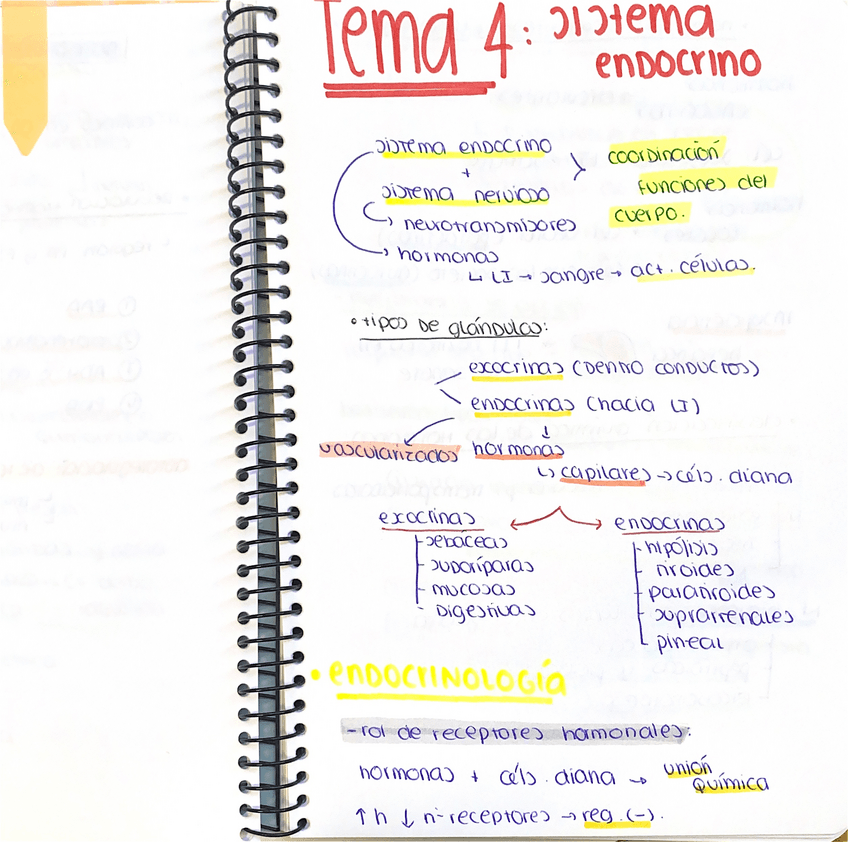 Tema 4: sistema
endocrino
sistema endocrino
+
sistema nervioso
coordinación
funciones del
cuerpo.
↳ neurotransmisores
→ hormonas
↳ LI → sangre → act. células.
• tipos de glándulas:
exocrinas (dentro conductos)
endocrinas (hacia LI)
↓
vascularizadas hormonas
↳ capilares → céls. diana
exocrinas ← → endocrinas
- sebáceas
- sudoríparas
- mucosas
- digestivas
- hipófisis
- tiroides
- paratiroides
- suprarrenales
- pineal
• ENDOCRINOLOGÍA
- rol de receptores hormonales.
hormonas + céls. diana → unión
química
↑ h ↓ nº receptores → reg. (-).